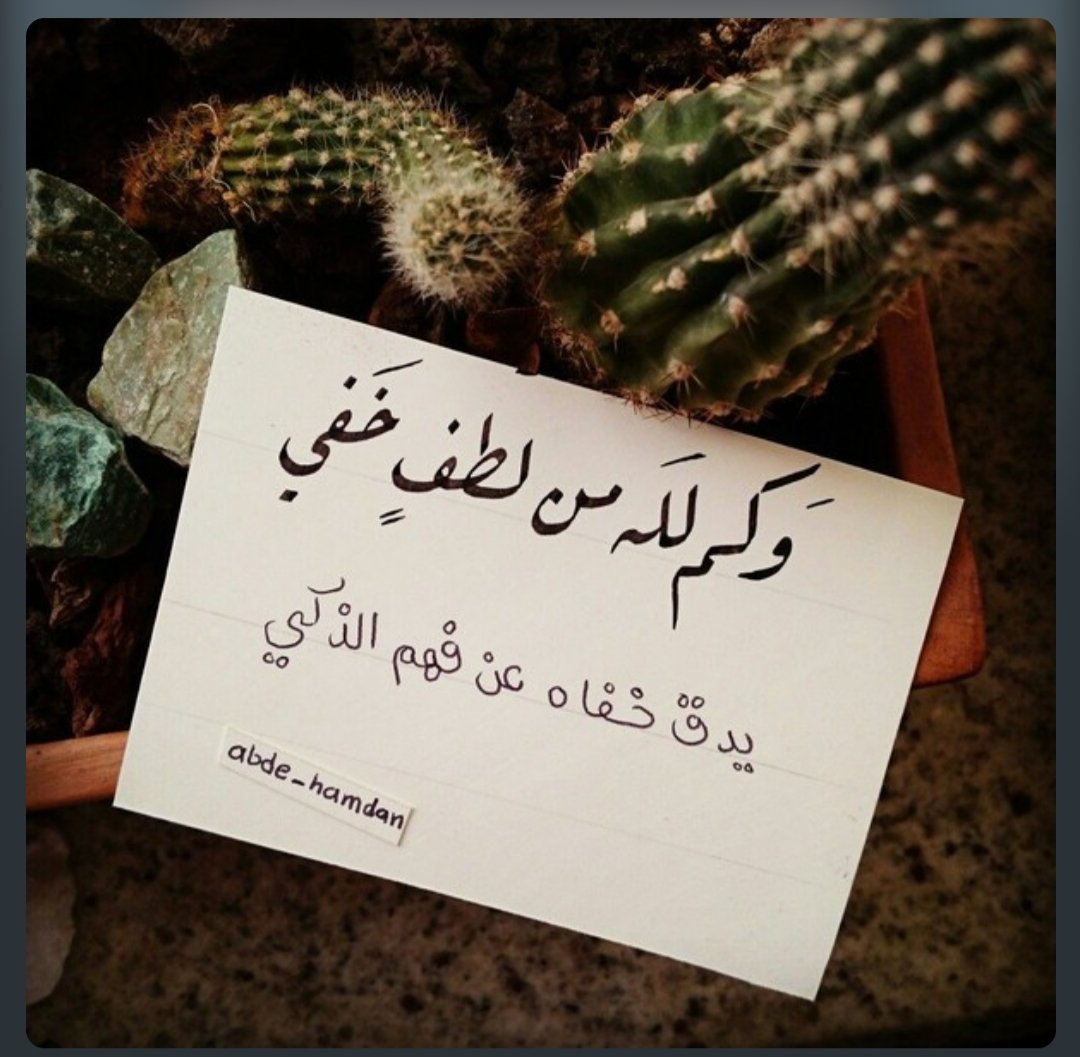 وَكم لله من لطفٍ خَفي
يدق خفاه عن فهم الذكي
abde_hamdan